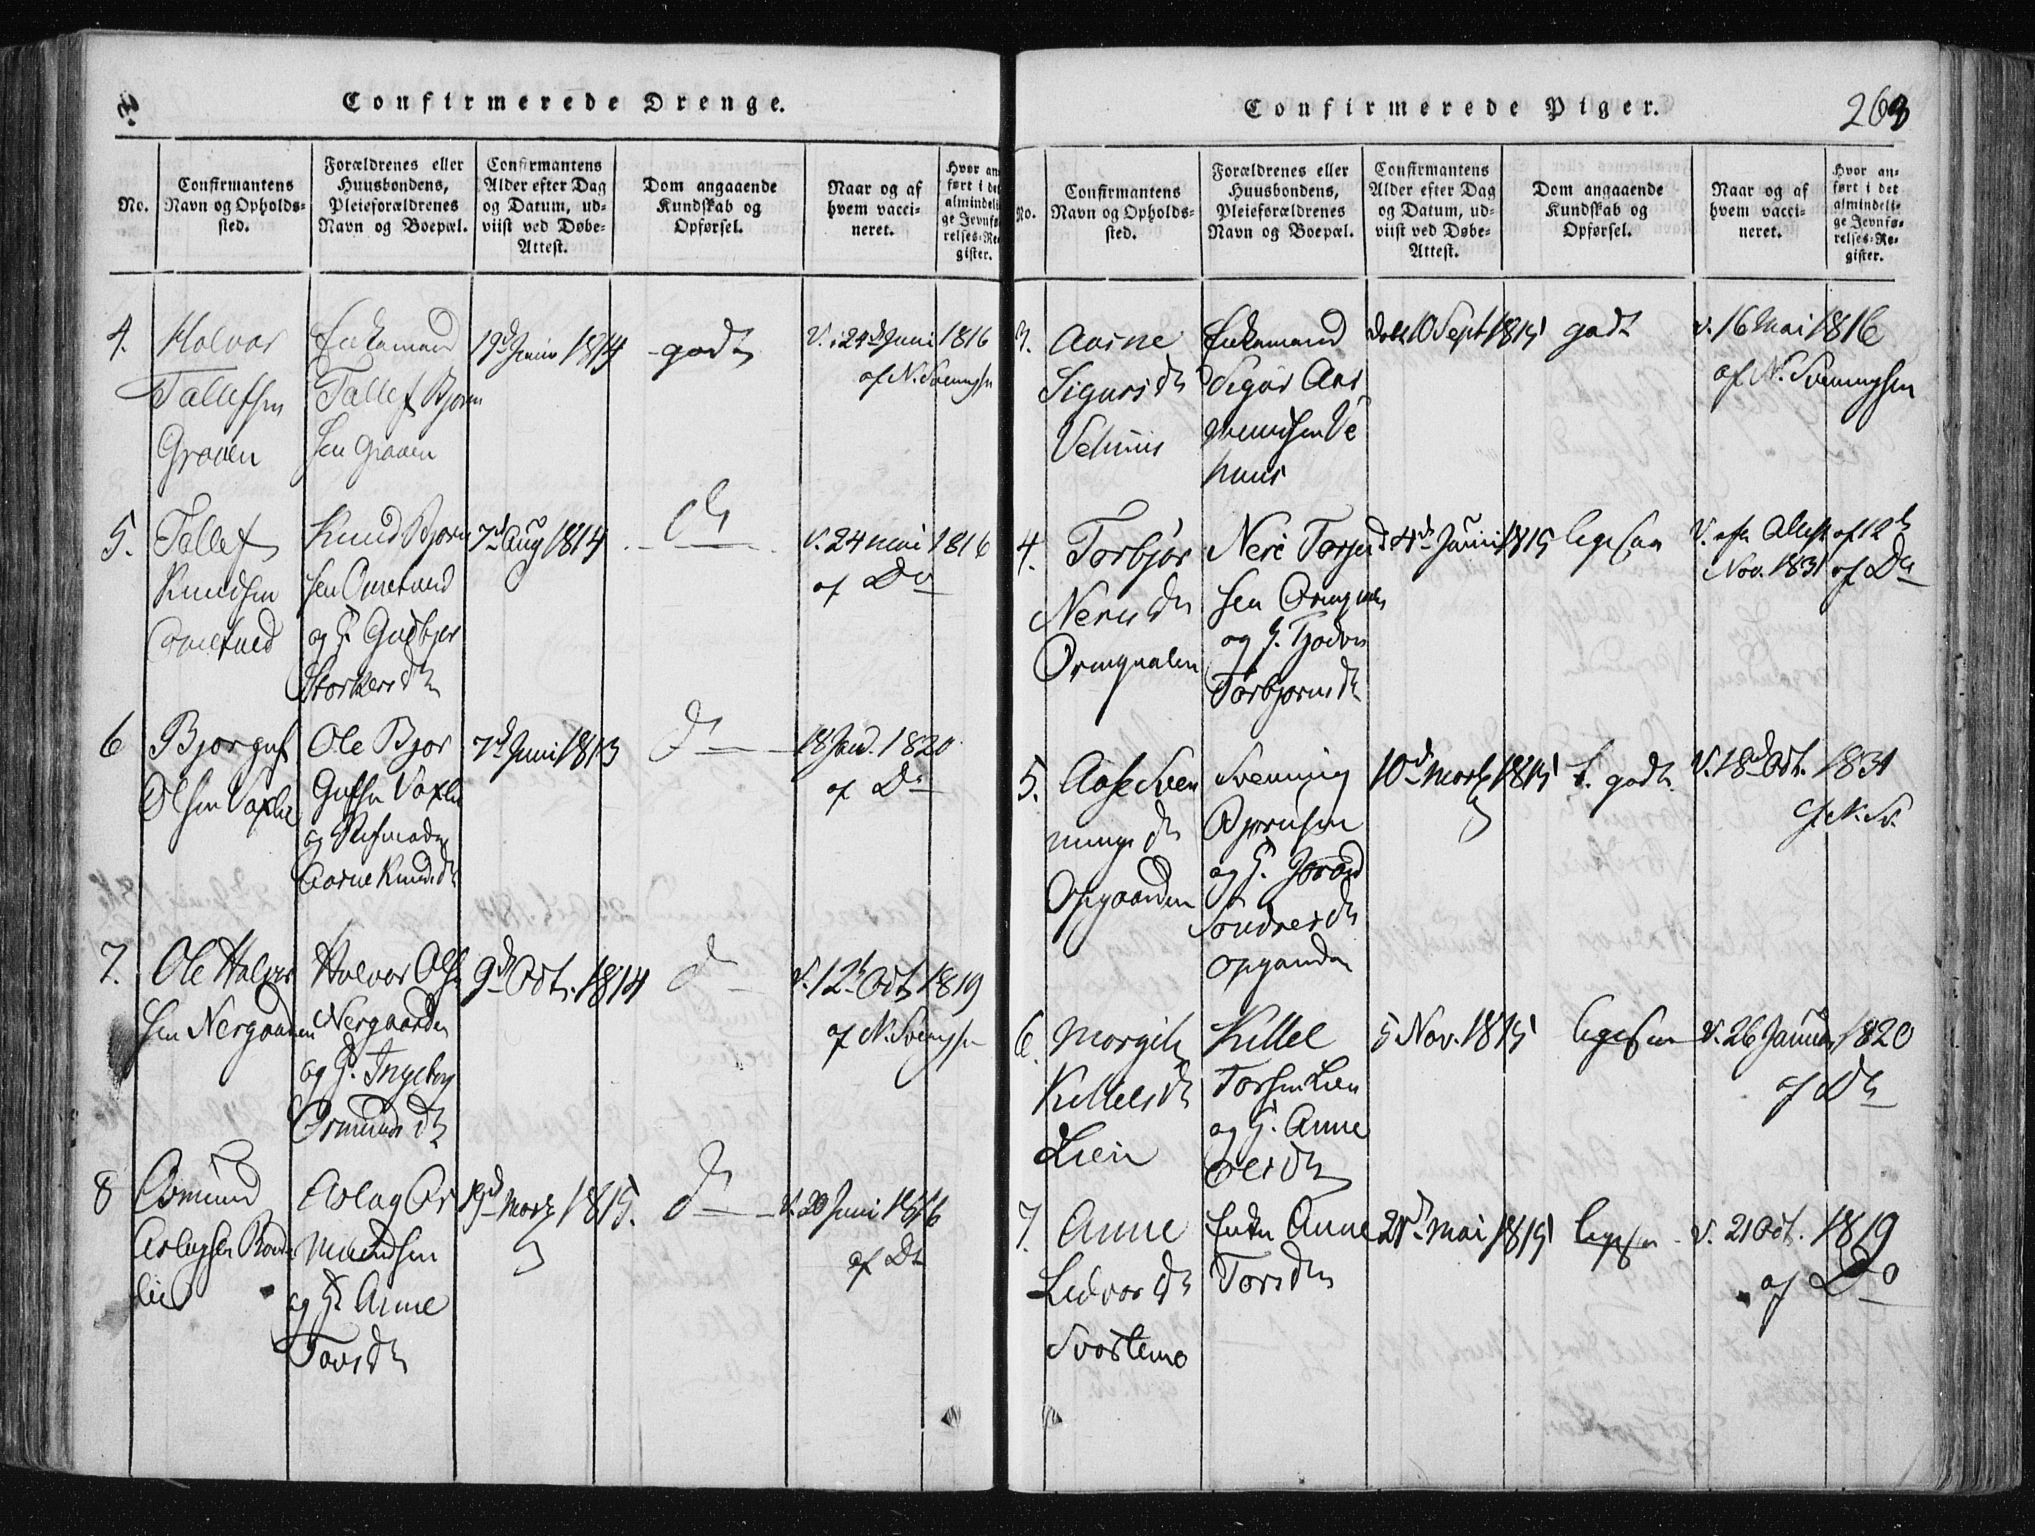 Confirmerede Drenge.
No.
Confirmantens
Navn og Opholds-
sted.
Forældrenes eller
Huusbondens,
Pleieforældrenes
Navn og Boepæl.
Confirmantens
Alder efter Dag
og Datum, ud-
viist ved Døbe-
Attest.
Dom angaaende
Kundskab og
Opførsel.
Naar og af
hvem vacci-
neret.
Hvor an-
ført i det
almindeli-
ge Jevnfø-
relses-Re-
gister.
4.
Halvor
Tallefsen
Graven
Enkemand
Tallef Bjorn
sen Graven
19d Juni 1814
godt
V. 24d Juni 1816
af N. Svenngsn
5.
Tallef
Knudsen
Knud Bjorn
sen
og G. Gudbjer
Storkersd
7d Aug 1814
do
V. 24 Mai 1816
af Do
6
Bjorguf
Olsen Vaxlie
Ole Bjor
Gufsn Vaxlie
og
Aarne Knudsd
7d Juni 1813
do
18 Jan. 1820
af Do
7.
Ole Halvor
sen Nergaarden
Halvor Olsn
Nergaarden
og G. Ingeborg
Osmundsd
9d Oct. 1814
do
V. 12t Oct 1819
af N. Svenngsn
8
Osmund
Aslagsen
lie
Aslag Os
mundsen
og G. Anne
Tovsd
19d Marz 1815.
do
V. 20 Juni 1816
af Do
Confirmerede Piger.
263
No.
Confirmantens
Navn og Opholds-
sted.
Forældrenes eller
Huusbondens,
Pleieforældrenes
Navn og Boepæl.
Confirmantens
Alder efter Dag
og Datum, ud-
viist ved Døbe-
Attest.
Dom angaaende
Kundskab og
Opførsel.
Naar og af
hvem vacci-
neret.
Hvor an-
ført i det
almindeli-
ge Jevnfø-
relses-Re-
gister.
3.
Aarne
Sigursd
Vehuus
Enkemand
Sigur Aas
mundsen Ve
huus
10 Sept 1815
godt
V. 16 Mai 1816
af N. Svenngsen
4.
Torbjør
Nerisd
Neri Torju
sen
og G. Tjodvor
Torbjornsd
4d Juni 1815
ligesaa
V. efter Attest af 12t
Nov. 1831 af Do
5.
Aase Sven
nungsd
Opgaarden
Svenning
Bjornsen
og G. Jorand
Sondresd
Opgaarden
10d Martz 1815
t. godt
V. 18d Oct. 1831
af N. Sv.
6.
Margit
Killelsd
Lien
Killel
Torsen Lien
og G. Anne
Olesd
5 Nov. 1815
ligesaa
V. 26 Januar 1820
af Do
7.
Anne
Ledvorsd
Svartemo
Enke Anne
Torsd
21d Mai 1815
ligesaa
V. 21 Oct. 1819
af Do